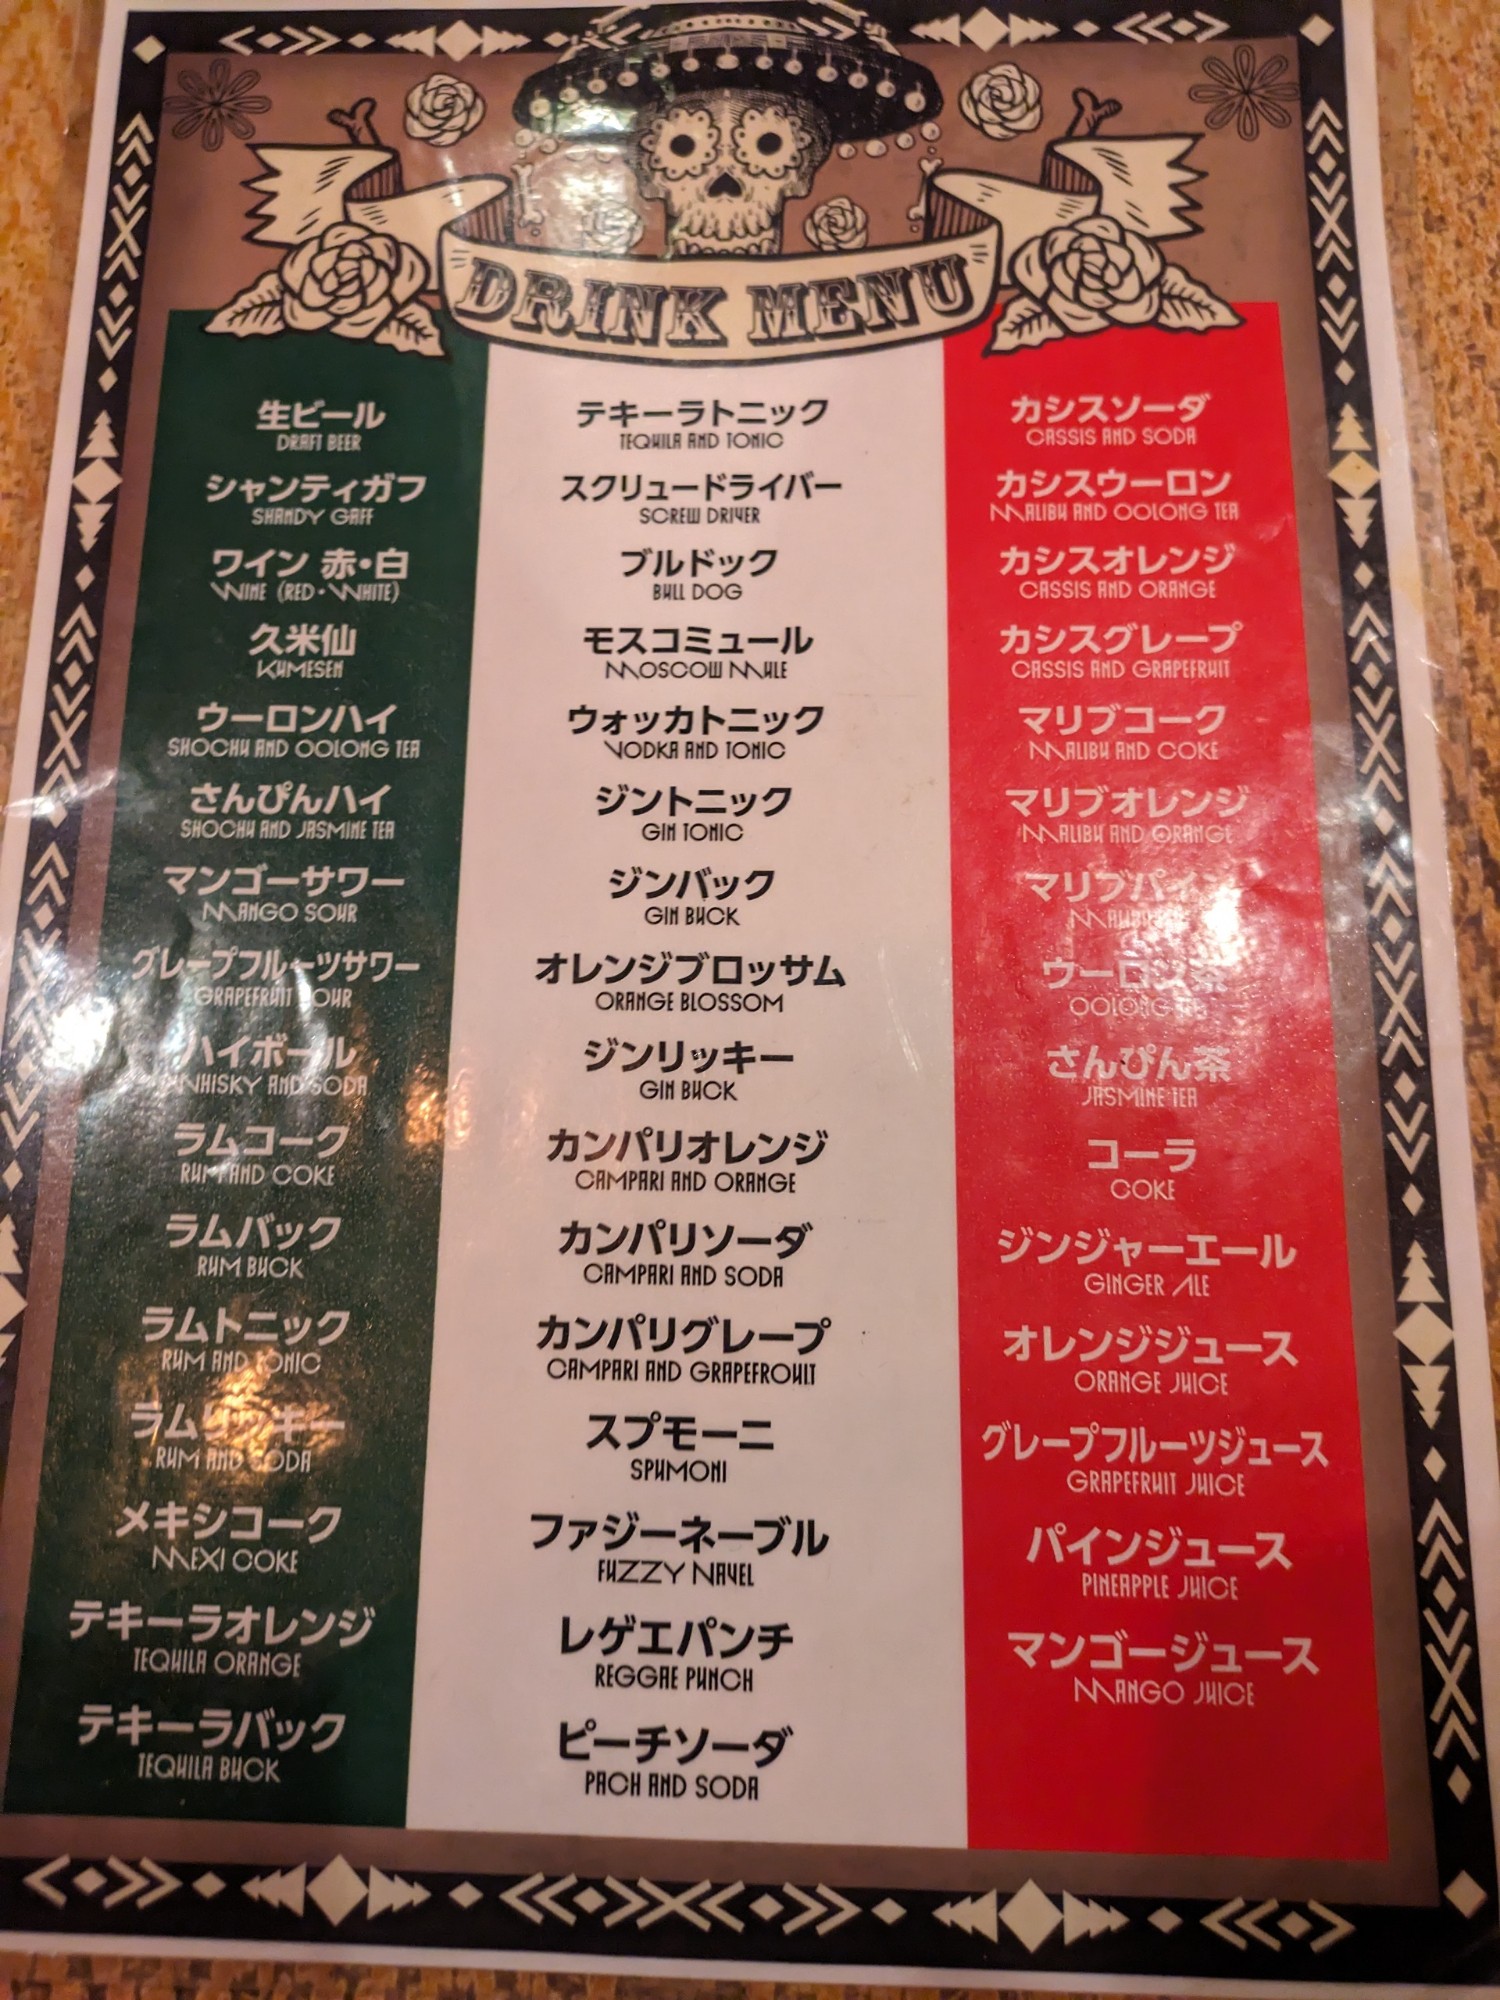 DRINK MENU
生ビール
DRAFT BEER
シャンディガフ
SHANDY GAFF
ワイン 赤・白
WINE (RED・WHITE)
久米仙
KUMESEN
ウーロンハイ
SHOCHU AND OOLONG TEA
さんぴんハイ
SHOCHU AND JASMINE TEA
マンゴーサワー
MANGO SOUR
グレープフルーツサワー
GRAPEFRUIT SOUR
ハイボール
WHISKY AND SODA
ラムコーク
RUM AND COKE
ラムバック
RUM BUCK
ラムトニック
RUM AND TONIC
ラムリッキー
RUM AND SODA
メキシコーク
MEXI COKE
テキーラオレンジ
TEQUILA ORANGE
テキーラバック
TEQUILA BUCK
テキーラトニック
TEQUILA AND TONIC
スクリュードライバー
SCREW DRIVER
ブルドック
BULL DOG
モスコミュール
MOSCOW MULE
ウォッカトニック
VODKA AND TONIC
ジントニック
GIN TONIC
ジンバック
GIN BUCK
オレンジブロッサム
ORANGE BLOSSOM
ジンリッキー
GIN BUCK
カンパリオレンジ
CAMPARI AND ORANGE
カンパリソーダ
CAMPARI AND SODA
カンパリグレープ
CAMPARI AND GRAPEFROUIT
スプモーニ
SPUMONI
ファジーネーブル
FUZZY NAVEL
レゲエパンチ
REGGAE PUNCH
ピーチソーダ
PACH AND SODA
カシスソーダ
CASSIS AND SODA
カシスウーロン
MALIBU AND OOLONG TEA
カシスオレンジ
CASSIS AND ORANGE
カシスグレープ
CASSIS AND GRAPEFRUIT
マリブコーク
MALIBU AND COKE
マリブオレンジ
MALIBU AND ORANGE
マリブパイン
ウーロン茶
OOLONG TEA
さんぴん茶
JASMINE TEA
コーラ
COKE
ジンジャーエール
GINGER ALE
オレンジジュース
ORANGE JUICE
グレープフルーツジュース
GRAPEFRUIT JUICE
パインジュース
PINEAPPLE JUICE
マンゴージュース
MANGO JUICE